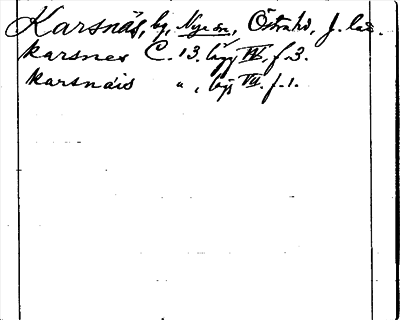 Karsnäs, by, Nye sn, Östra hd, J. län.
karsnes C. 13. läge IV. f. 3.
karsnäis " , läge VII. f. 1.